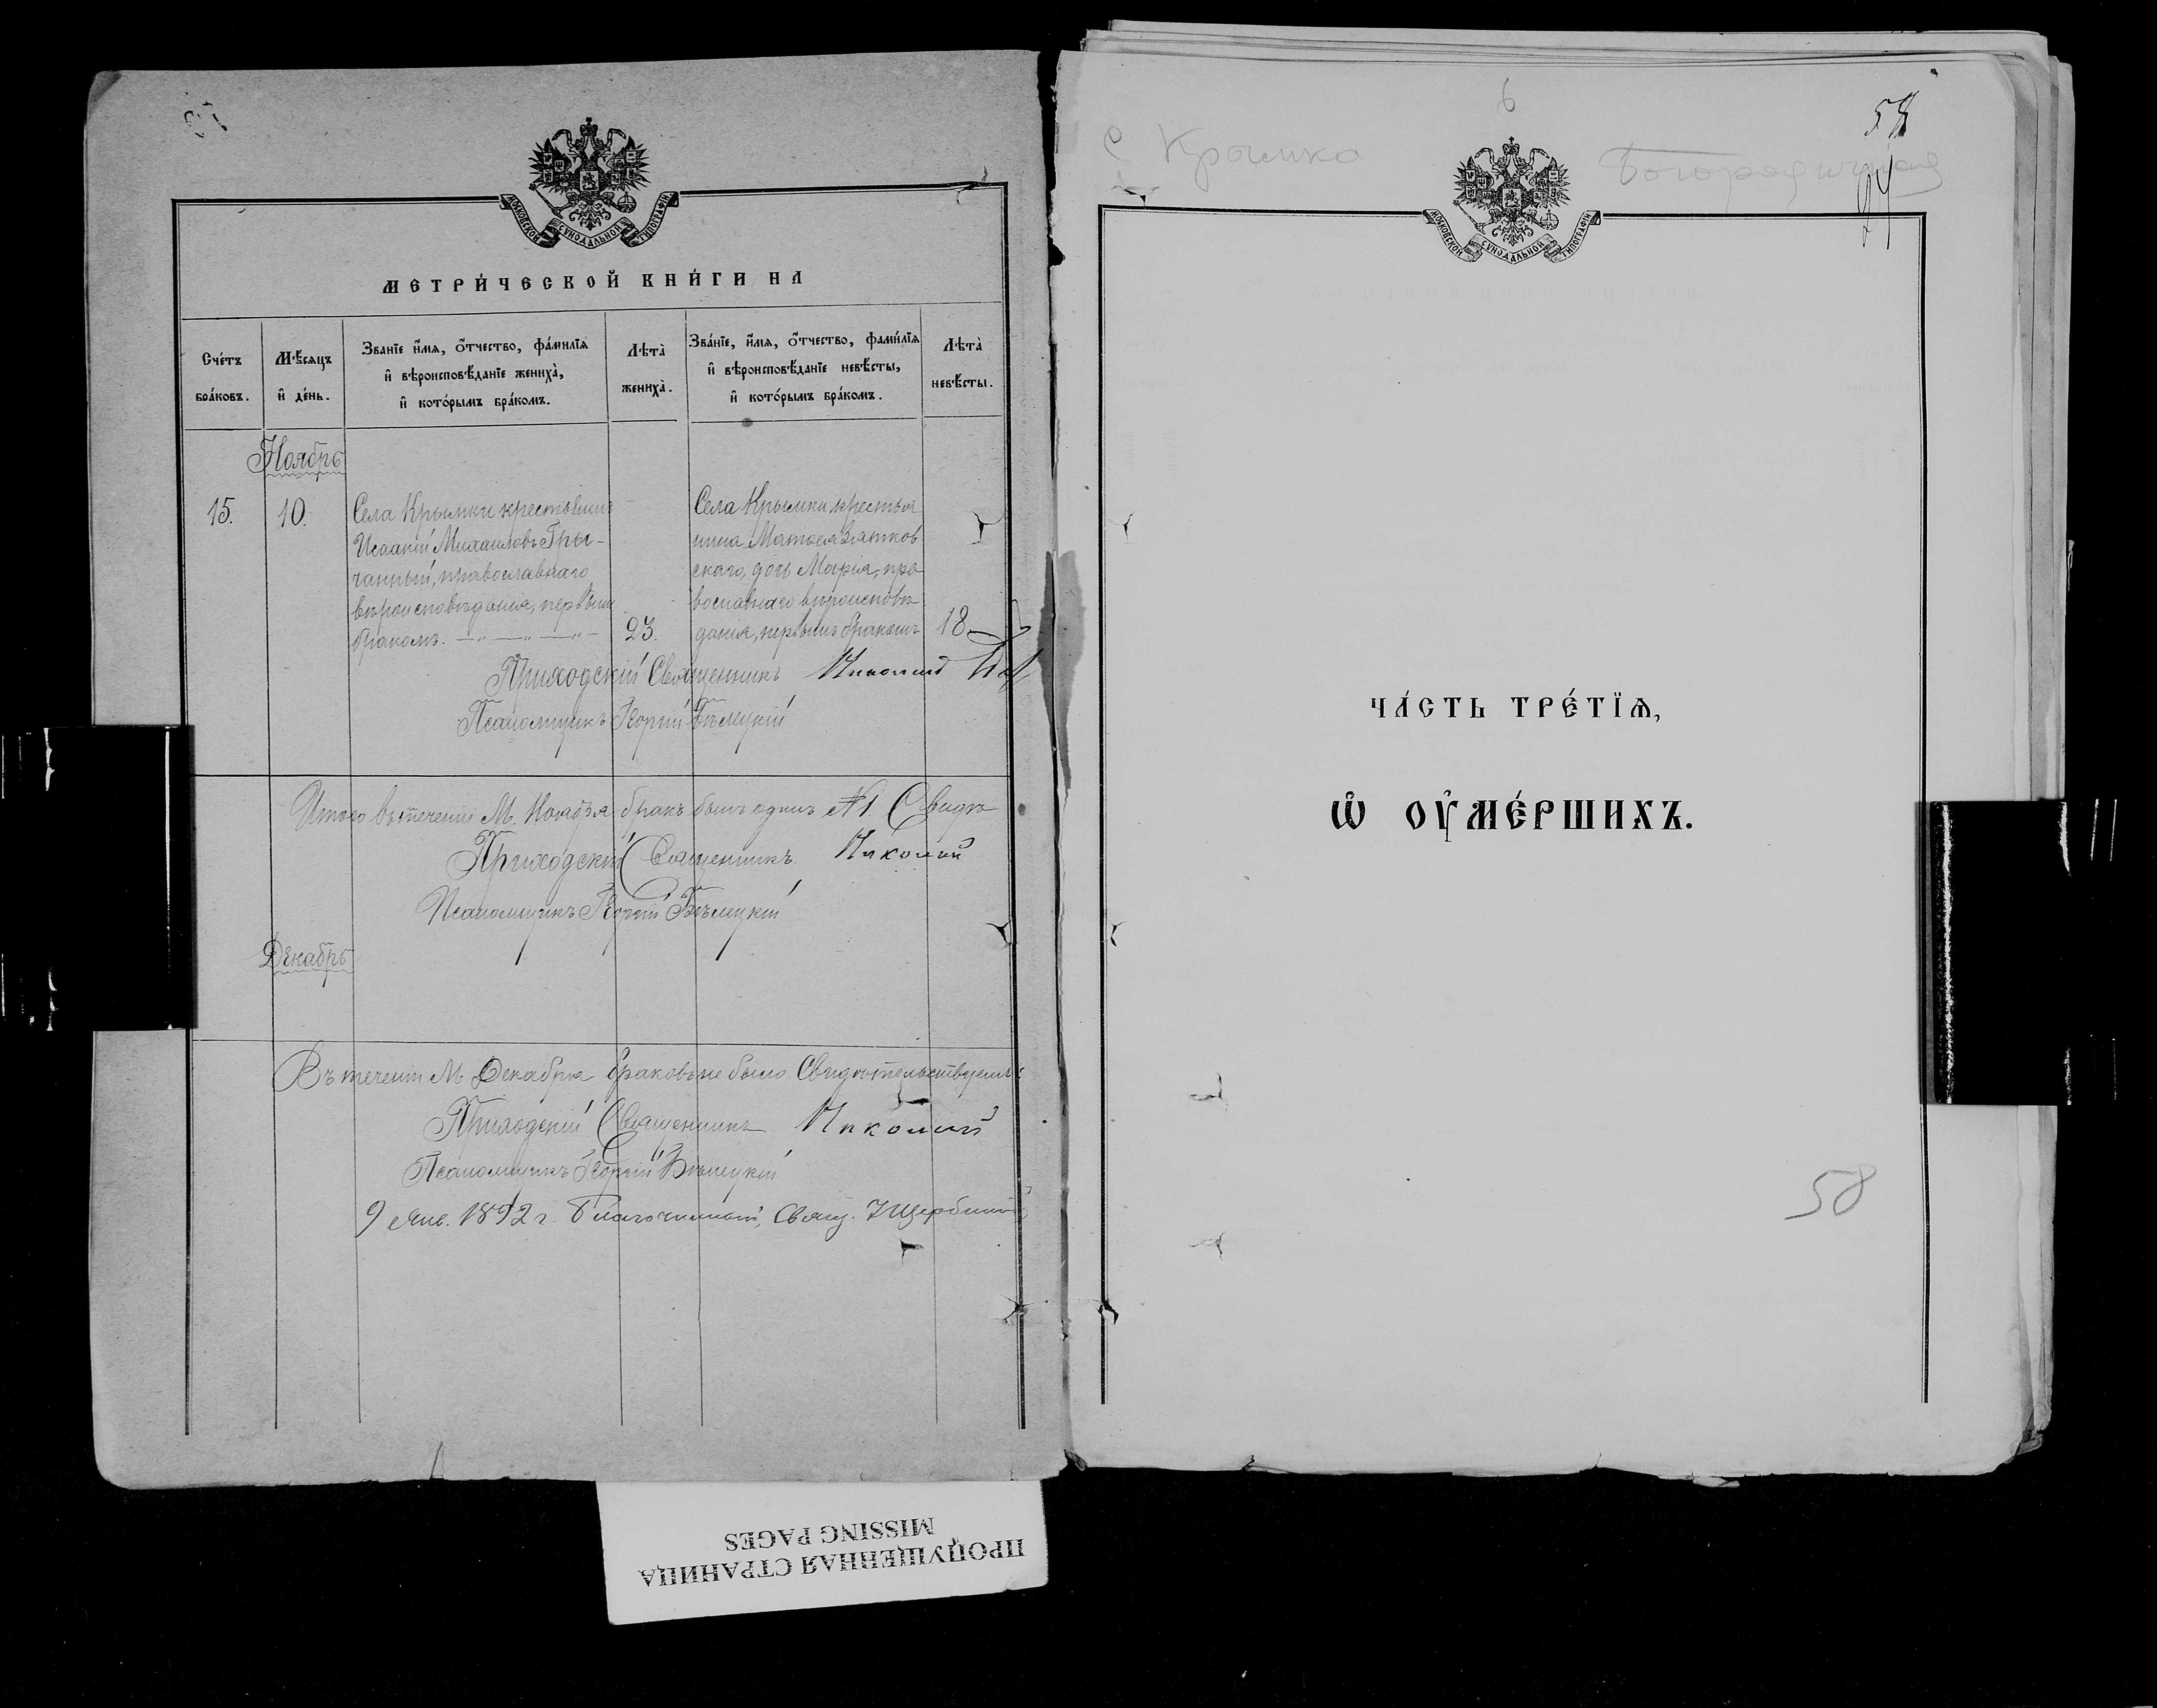 МОСКОВСКОЙ СѴНОДАЛЬНОЙ ТИПОГРАФІИ
МЕТРИ́ЧЕСКОЙ КНИ́ГИ НА
Сче́тъ бра́ковъ.
Мѣ́сяцъ и҆ де́нь.
Зва́нїе и҆́мѧ, ѻ҆́тчество, фамѝлїѧ
и҆ вѣроисповѣ́данїе жениха̀,
и҆ кото́рымъ бра́комъ.
Лѣта̀ жениха̀.
Зва́нїе, и҆́мѧ, ѻ҆́тчество, фами́лїѧ
и҆ вѣроисповѣ́данїе невѣ́сты,
и҆ кото́рымъ бра́комъ.
Лѣта̀ невѣ́сты.
Ноябрь
15.
10.
Села Крымки крестьянинъ
Исаакій Михаиловъ Гры-
чанный, православнаго
вѣроисповѣданія, первымъ
бракомъ.
23.
Села Крымки крестья
нина Матѳея Вятков
скаго, дочь Марія, пра
вославнаго вѣроисповѣ
данія, первымъ бракомъ
18
Приходскій Священникъ Николай
Псаломщикъ Георгій Бѣлецкій
Итого въ теченіи М. Ноября бракъ былъ одинъ №1. Свидѣ
Приходскій Священникъ Николай
Псаломщикъ Георгій Бѣлецкій
Декабрь
Въ теченіи М. Декабря браковъ не было. Свидѣтельствуемъ:
Приходскій Священникъ Николай
Псаломщикъ Георгій Бѣлецкій
9 Янв. 1892 г. Благочинный, Свящ. І Щербин
ПРОПУЩЕННАЯ СТРАНИЦА
MISSING PAGES
6
58
с Крымка
Богородичная
МОСКОВСКОЙ СѴНОДАЛЬНОЙ ТИПОГРАФІИ
ЧА́СТЬ ТРЕ́ТЇѦ,
Ѡ҆ ОУ҆МЕ́РШИХЪ.
58